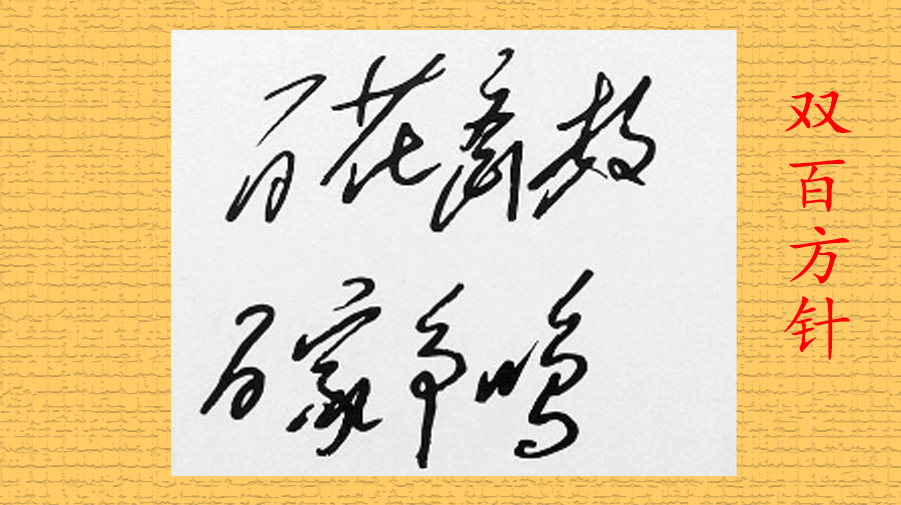 百花齊放
百家争鳴
双百方针